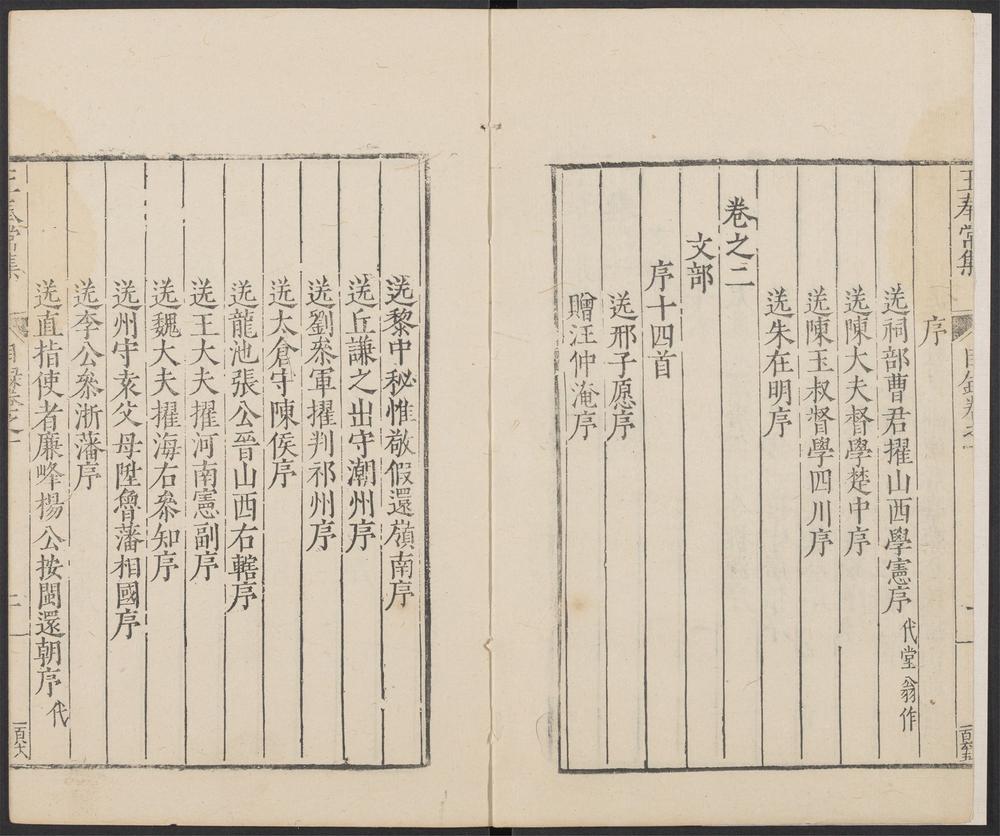 王奉常集 目錄卷之一
序
送祠部曹君擢山西學憲序 代堂翁作
送陳大夫督學楚中序
送陳玉叔督學四川序
送朱在明序
卷之二
文部
序十四首
送邢子愿序
贈汪仲淹序
送黎中秘惟敬假還嶺南序
送丘謙之出守潮州序
送劉叅軍擢判祁州序
送太倉守陳侯序
送龍池張公晉山西右轄序
送王大夫擢河南憲副序
送魏大夫擢海右叅知序
送州守袁父母陞魯藩相國序
送李公叅浙藩序
送直指使者廉峰楊公按閩還朝序 代
王奉常集 目錄卷之一